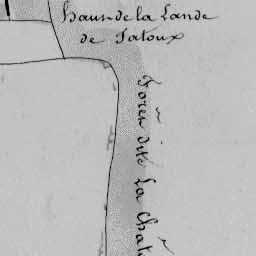 haus de la Lande
de Patoux
Forêt dite La Chât